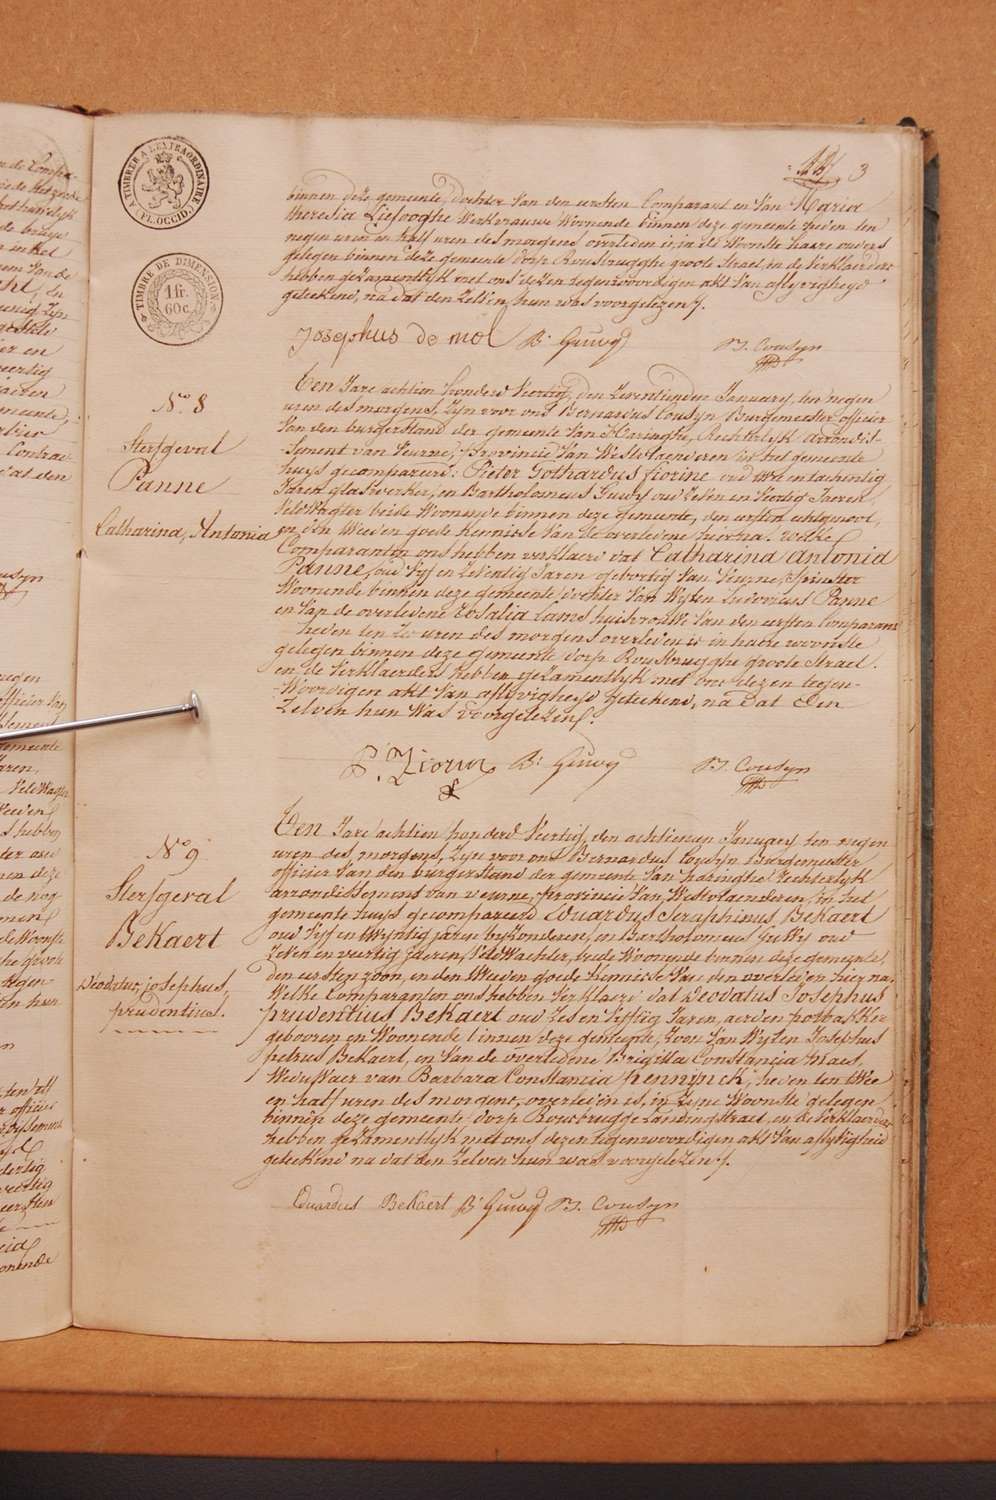 3
A TIMBRER A L'EXTRAORDINAIRE
(FL. OCCID.)
TIMBRE DE DIMENSION
1 fr.
60 c.
binnen deze gemeente, dochter van den eersten Comparant en van Maria
theresia Liefooghe Werkvrauwe Woonende binnen deze gemeente
negen uren en half uren des morgens overleden is, in de Woonste haere ouders
gelegen binnen deze gemeente dorp Rousbrugghe groote Straet, en de Verklaerders
hebben gezamentlyk met ons dezen tegenwoordigen akt van aflyvigheyd
geteekend, na dat den zelven hun was voorgelezen.
Josephus de mol B. Guwy B. Cousyn
No. 8
Sterfgeval
Panne
Catharina, Antonia
Een Jare achtien honderd Veertig, den Zeventienden January, ten negen
uren des morgens, Zyn voor ons Bernardus Cousyn Burgemeester officier
Van den burgerstand der gemeente Van Haringhe, Rechterlyk arrondis-
-sement van Veurne, Provincie Van Westvlaenderen in het gemeente
huys gecompareerd: Pieter Gothardus fiorine oud
Jaren glaswerker, en Bartholomeus Guwy oud Zeven en Veertig Jaeren,
Veldwagter beide Woonende binnen deze gemeente, den eersten echtgenoot,
en den tweeden goede kennisse Van de overledene hierna. welke
Comparanten ons hebben verklaerd dat Catharina Antonia
Panne, oud Vyf en Zeventig Jaren geboortig Van Veurne,
Woonende binnen deze gemeente dochter Van Wylen Ludovicus Panne
en Van de overledene Rosalia Cams huisvrouwe Van den eersten Comparant
heden ten uren des morgens overleden is in hare woonste
gelegen binnen deze gemeente dorp Rousbrugghe groote Straet.
en de Verklaerders hebben gezamentlyk met ons dezen tegen-
-Woordigen akt Van aflyvigheyd geteekend, na dat den
Zelven hun Was Voorgelezen.
P. Fiorin B. Guwy B. Cousyn
No. 9
Sterfgeval
BeKaert
Deodatus, josephus,
prudentius.
Een Jare achtien honderd Veertig, den achtienen January ten negen
uren des morgens, Zyn voor ons Bernardus Cousyn Burgemeester
officier Van den burgerstand der gemeente Van haringhe rechterlyk
arrondissement van veurne, provincie Van Westvlaenderen, in het
gemeente huys gecompareerd Eduardus Seraphinus BeKaert
oud Vyf en twyntig jaren byzonderen, en Bartholomeus Guwy oud
Zeven en veertig jaeren, VeldWachter, beide Woonende binnen deze gemeente,
den eersten zoon, en den tweeden goede kennisse Van den overleden hier na.
Welke Comparanten ons hebben Verklaerd dat Deodatus Josephus
prudentius BeKaert oud Zes en Vyftig Jaren, aerden potbakker
gebooren en Woonende binnen deze gemeente, Zoon Van Wylen Josephus
petrus BeKaert, en Van de overledene Brigitta Constancia Maes,
WeduWaer van Barbara Constancia pennynck, heden ten twee
en half uren des morgens, overleden is, in Zyne Woonste gelegen
binnen deze gemeente dorp Rousbrugge Straet, en de Verklaerders
hebben gezamentlyk met ons dezen tegenwoordigen akt Van aflyvigheid
geteekend na dat den Zelven hun was voorgelezen.
Eduardus BeKaert B. Guwy B. Cousyn